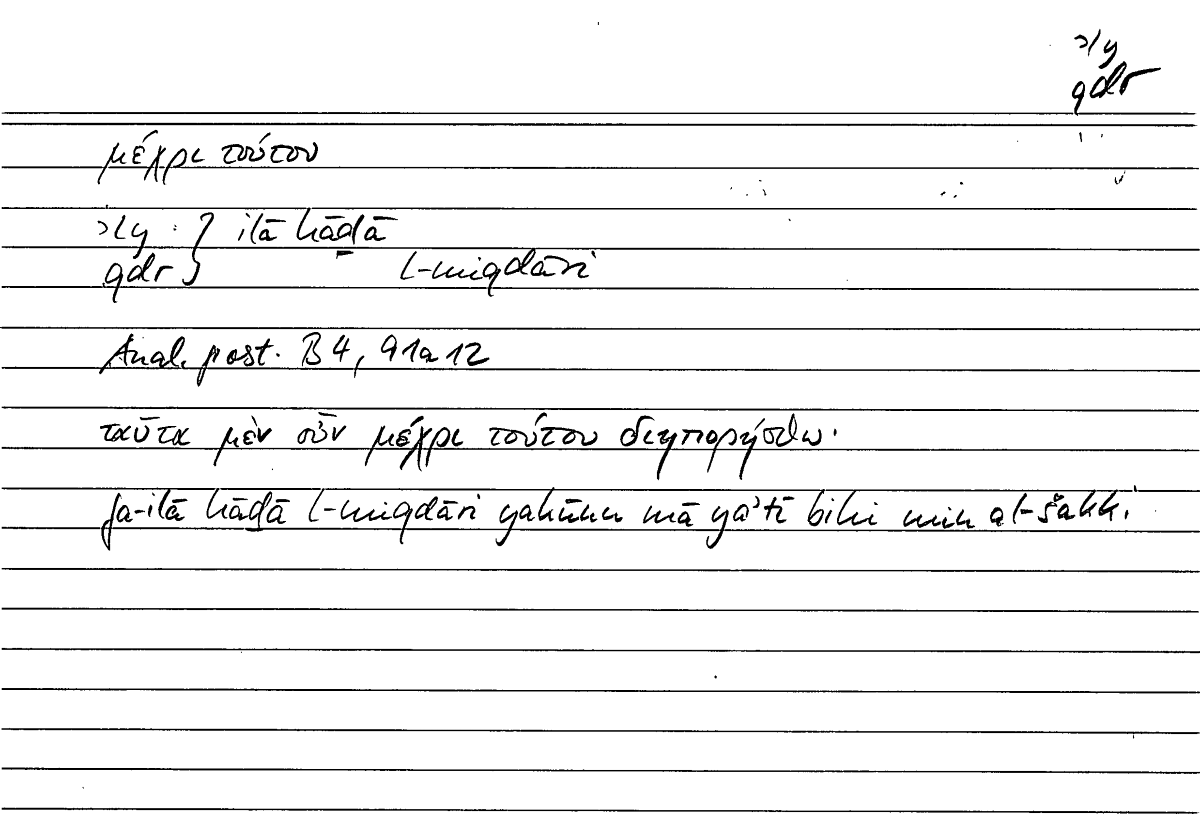 ʾly
qdr
μέχρι τούτου
ʾly } ilā hāḏā
qdr } l-miqdāri
Anal. post. B 4, 91a12
ταῦτα μὲν οὖν μέχρι τούτου διηπορήσθω·
fa-ilā hāḏā l-miqdāri yakūnu mā yaʾtī bihi min al-šakki